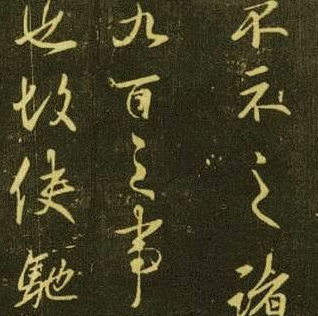 不示之諸
九百之事
也故使馳